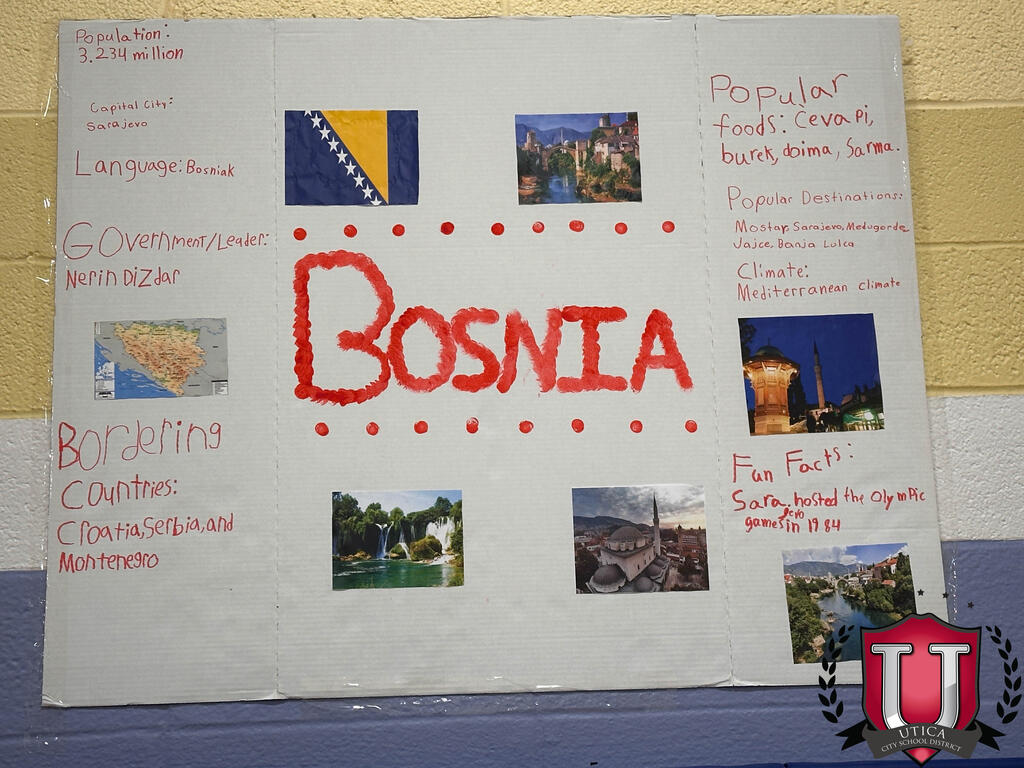 Population:
3.234 million
Capital City:
Sarajevo
Language: Bosniak
Government/Leader:
Nerin Dizdar
Bordering
Countries:
Croatia, Serbia, and
Montenegro
BOSNIA
Popular
foods: Ceva Pi,
burek, doima, Sarma.
Popular Destinations:
Mostar, Sarajevo, Medugorde
Jajce, Banja Lulca
Climate:
Mediterranean climate
Fun Facts:
Sarajevo hosted the Olympic
games in 1984
U
UTICA
CITY SCHOOL DISTRICT